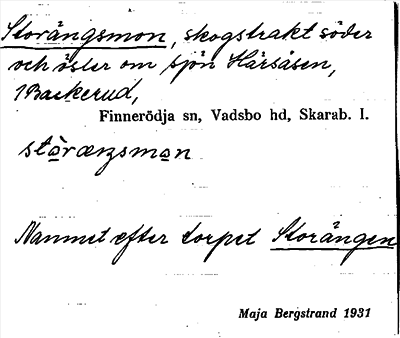 Storängsmon, skogstrakt söder
och öster om sjön Hårsåsen,
1 Backerud,
Finnerödja sn, Vadsbo hd, Skarab. l.
Namnet efter torpet Storängen
Maja Bergstrand 1931